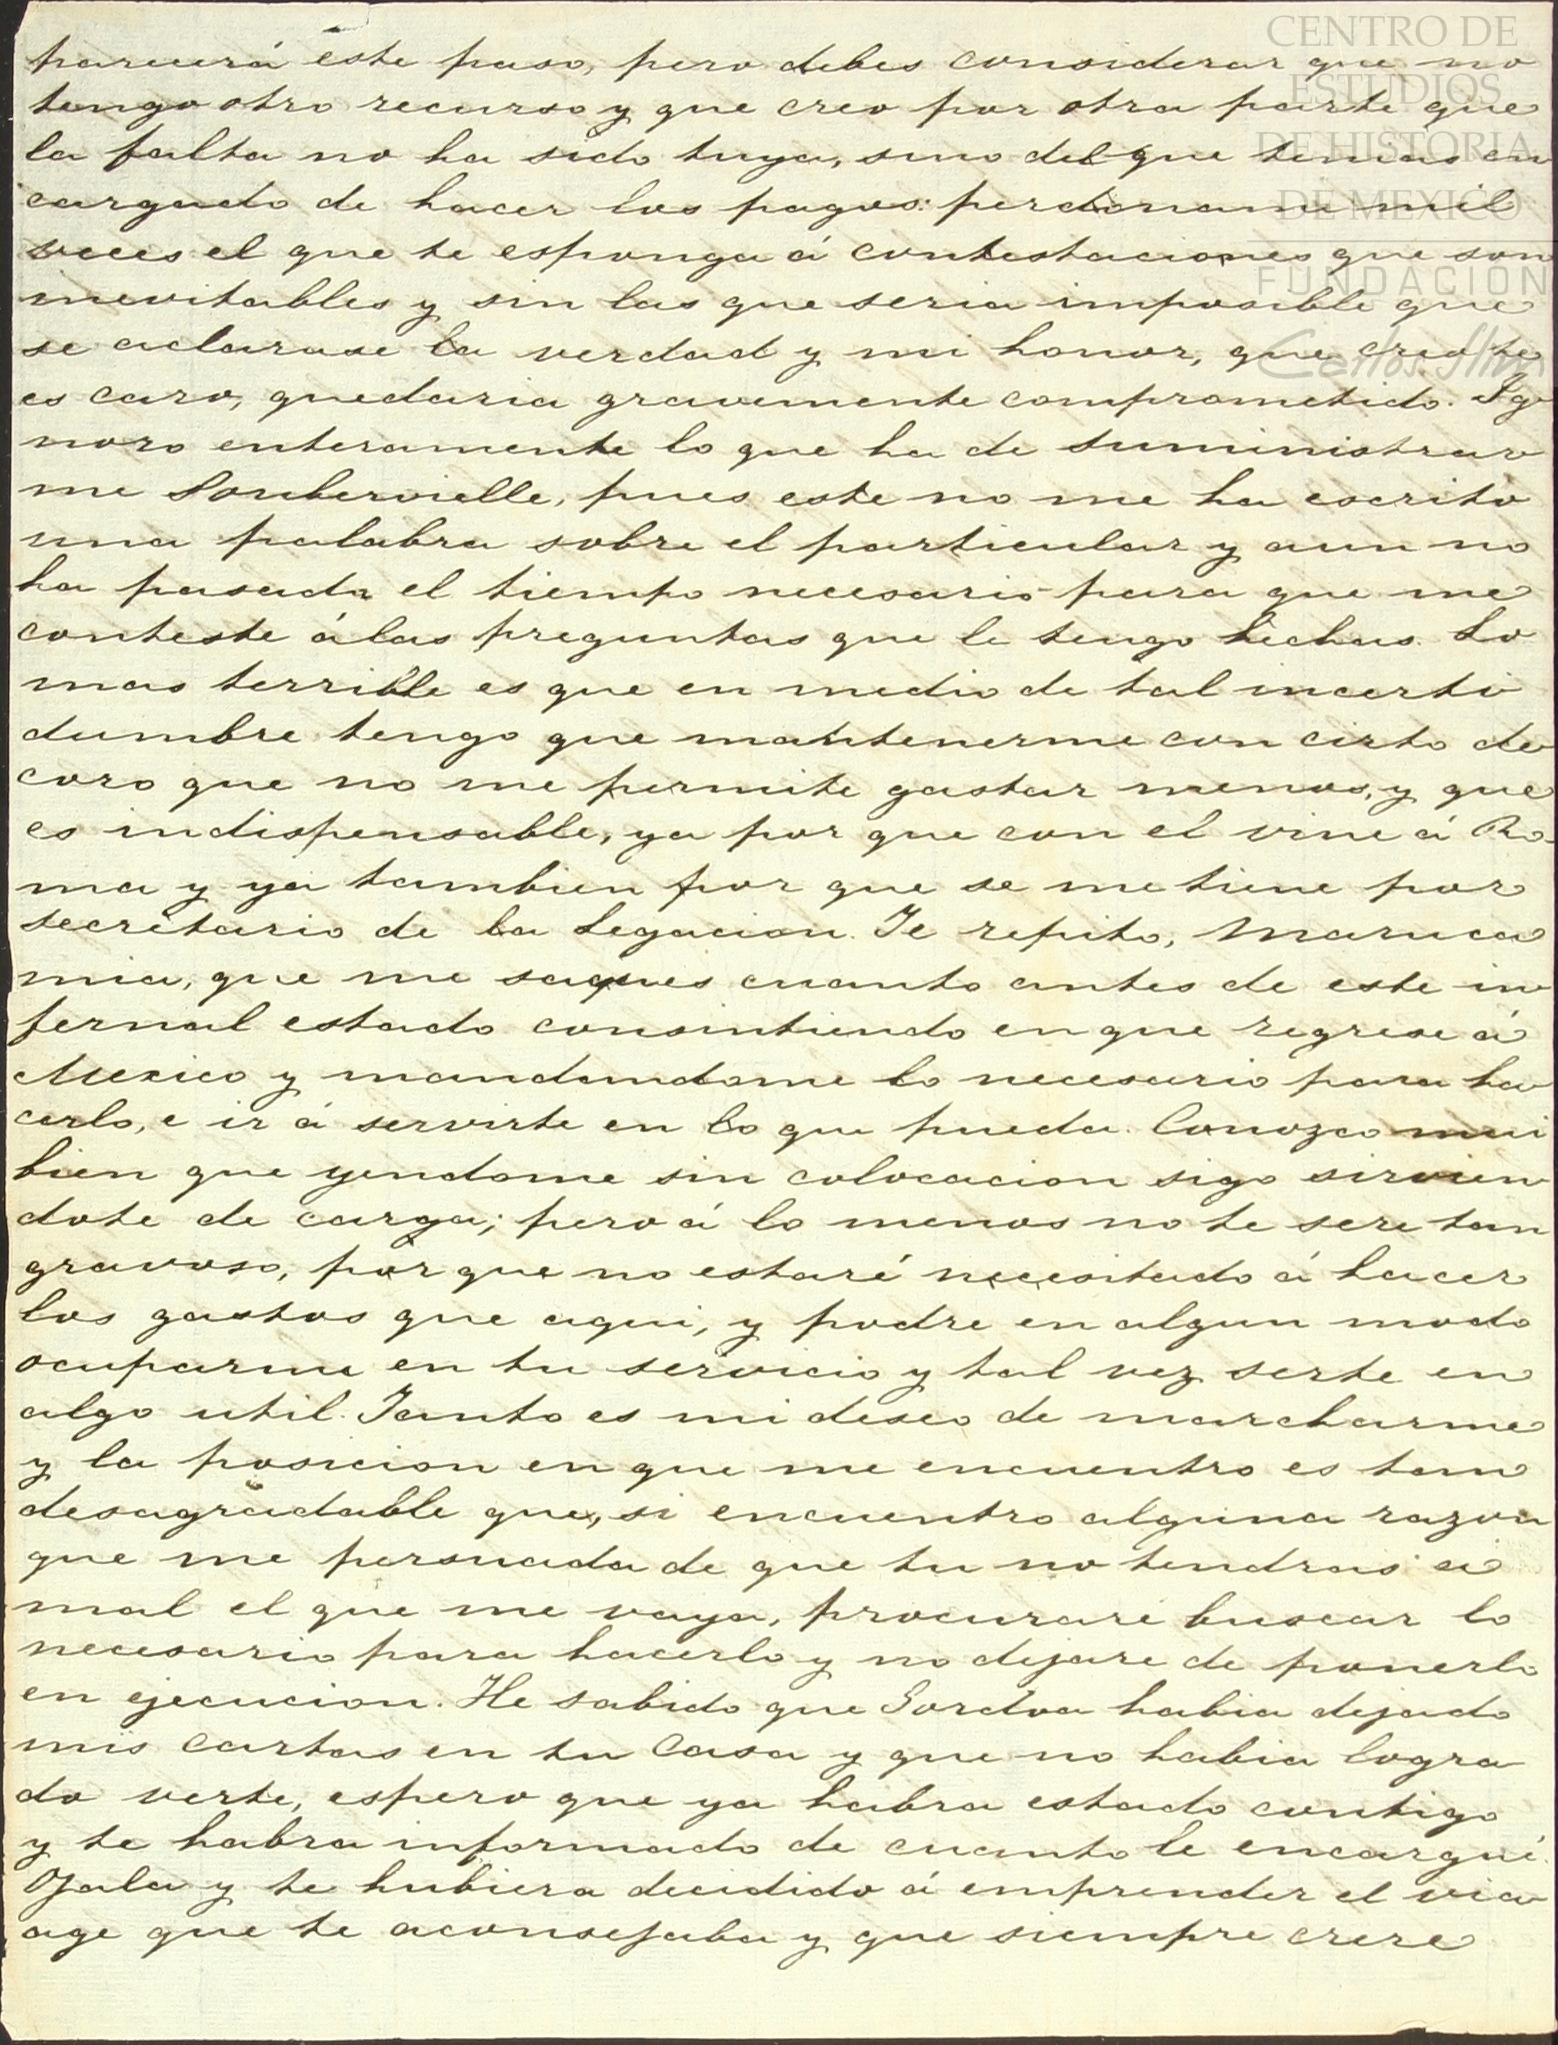 parecerá este paso, pero debes considerar que no
tengo otro recurso y que creo por otra parte que
la falta no ha sido tuya, sino del que tenias en
cargado de hacer los pagos: perdoname mil
veces el que te esponga á contestaciones que son
inevitables y sin las que seria imposible que
se aclarase la verdad y mi honor, que creo te
es caro, quedaria gravemente comprometido. Ig
noro enteramente lo que ha de suministrar
me Soubervielle, pues este no me ha escrito
una palabra sobre el particular y aun no
ha pasado el tiempo necesario para que me
conteste á las preguntas que le tengo hechas. Lo
mas terrible es que en medio de tal incerti
dumbre tengo que mantenerme con cirto de
coro que no me permite gastar menos, y que
es indispensable, ya por que con el vine á Ro-
ma y ya tambien por que se me tiene por
secretario de la Legacion. Te repito, Maruca
mia, que me saques cuanto antes de este in
fernal estado consintiendo en que regrese á
Mexico y mandandome lo necesario para ha
cerlo, e ir á servirte en lo que pueda. Conozco mui
bien que yendome sin colocacion sigo sirvien
dote de carga; pero á lo menos no te sere tan
gravoso, por que no estaré necesitado á hacer
los gastos que aqui, y podre en algun modo
ocuparme en tu servicio y tal vez serte en
algo util. Tanto es mi deseo de marcharme
y la posicion en que me encuentro es tan
desagradable que, si encuentro alguna razon
que me persuada de que tu no tendras á
mal el que me vaya, procuraré buscar lo
necesario para hacerlo y no dejare de ponerlo
en ejecucion. He sabido que Gordoa habia dejado
mis cartas en tu casa y que no habia logra
do verte, espero que ya habra estado contigo
y te habra informado de cuanto le encargué.
Ojala y te hubiera decidido á emprender el via
age que te aconsejaba y que siempre crere
CENTRO DE
ESTUDIOS
DE HISTORIA
DE MEXICO
FUNDACIÓN
Carlos Slim